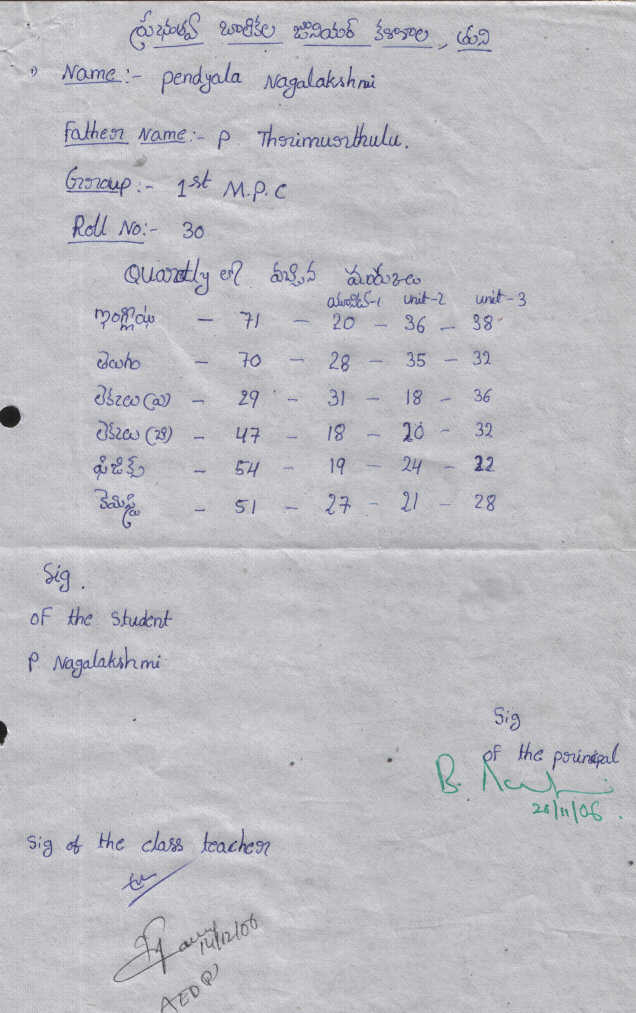 ప్రభుత్వ బాలికల జూనియర్ కళాశాల, తుని
1) Name :- pendyala Nagalakshmi
Father Name :- P Thrimurthulu.
Group :- 1st M.P.C
Roll No:- 30
Quartly లో వచ్చిన మార్కులు
యూనిట్-1 unit-2 unit-3
ఇంగ్లీషు - 71 - 20 - 36 - 38
తెలుగు - 70 - 28 - 35 - 32
లెక్కలు (ఎ) - 29 - 31 - 18 - 36
లెక్కలు (బి) - 47 - 18 - 20 - 32
ఫిజిక్స్ - 54 - 19 - 24 - 22
కెమిస్ట్రీ - 51 - 27 - 21 - 28
Sig.
of the Student
P Nagalakshmi
Sig
of the principal
B.
/11/06.
Sig of the class teacher
14/12/06
AED